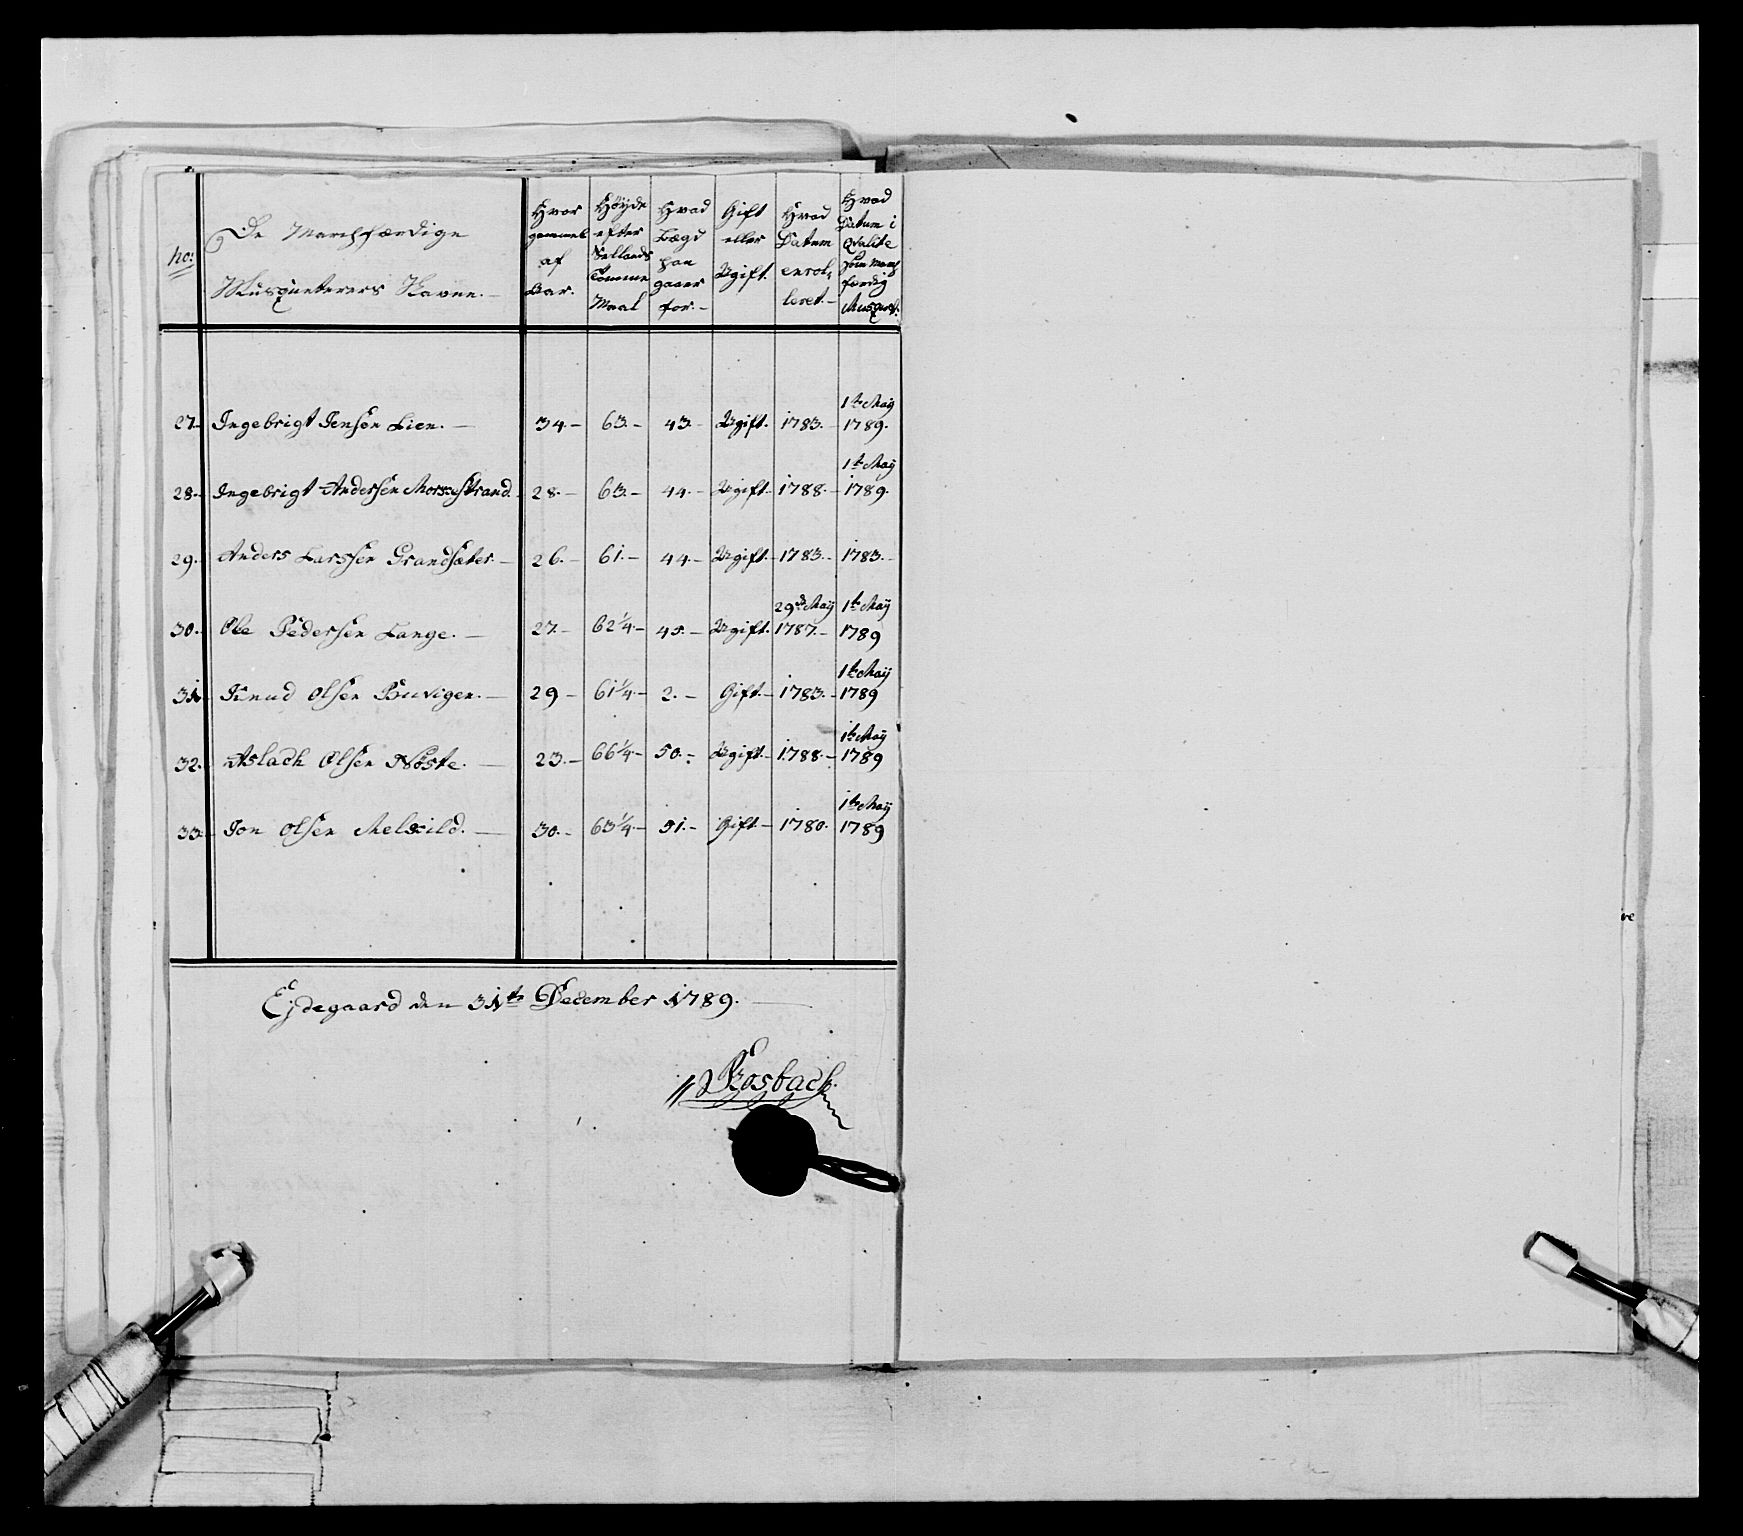 no: De Marchfærdige Musqueterers Navne. Hvor gammel af Aar. Høyde efter Sællands Tomme Maal Hvad Lægd han gaaer for. Gift eller Ugift. Hvad Datum enrolleret. Hvad Datum i Qvalite som March færdig Musquet.
27. Ingebrigt Jensen Lien. 34. 63. 43. Ugift. 1783. 1te Maij 1789.
28. Ingebrigt Andersen Morsestrand. 28. 63. 44. Ugift. 1788. 1te Maij 1789.
29. Anders Larssen Grandsæter. 26. 61. 44. Ugift. 1783. 1783.
30. Ole Pedersen Lange. 27. 62 1/4. 45. Ugift. 29de Maij 1787. 1te Maij 1789
31. Knud Olsen Buvigen. 29 61 1/4. 2. Gift. 1783. 1te Maij 1789
32. Aslach Olsen Nøste. 23. 66 1/4. 50. Ugift. 1788. 1te Maij 1789
33. Jon Olsen Melxild. 30. 63 1/4. 51. Gift 1780. 1te Maij 1789
Ejdegaard den 31te December 1789.
Rosbach.